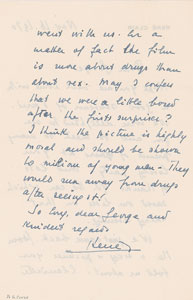 went with us. As a
matter of fact the film
is more about drugs than
about sex. May I confess
that we were a little bored
after the firsts surprise?
I think the picture is highly
moral and should be shown
to million of young men - They
would run away from drugs
after seeing it!
So long, dear George and
kindest regards
René